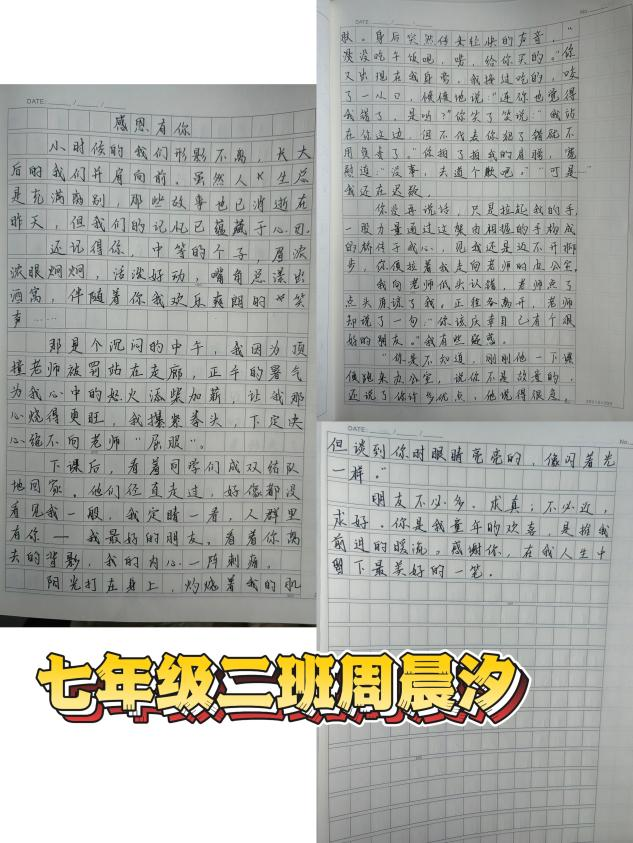 DATE:
感恩有你
小时候的我们形影不离，长大
后的我们并肩向前。虽然人生总
是充满离别，那些故事也已消逝在
昨天，但我们的记忆已蕴藏于心田。
还记得你，中等的个子，眉浓
浓眼炯炯，活泼好动，嘴角总漾出
酒窝，伴随着你我欢乐爽朗的笑
声……
那是个沉闷的中午，我因为顶
撞老师被罚站在走廊，正午的暑气
为我心中的怒火添柴加薪，让我那
心烧得更旺，我攥紧拳头，下定决
心绝不向老师“屈服”。
下课后，看着同学们成双结队
地回家。他们径直走过，好像都没
看见我一般，我定睛一看，人群里
有你——我最好的朋友。看着你离
去的背影，我的内心一阵刺痛。
阳光打在身上，灼烧着我的肌
DATE
No.
肤。身后突然传来轻快的声音，“
没吃午饭吧，喏，给你买的。”你
又出现在我身旁，我接过吃的，咬
了一小口，愤愤地说：“连你也觉得
我错了，是吗？”你笑了笑说：“我站
在你这边，但不代表你犯了错就不
用负责了。”你拍了拍我的肩膀，宽
慰道：“没事，去道个歉吧。”“可是—”
我还在迟疑。
你没再说话，只是拉起我的手，
一股力量通过这紧相握的手构成
的桥传于我心，见我还是迈不开脚
步，你便拉着我走向老师的办公室。
我向老师低头认错，老师点了
点头原谅了我。正准备离开，老师
却说了一句：“你该庆幸自己有个很
好的朋友。”我有些疑惑。
“你是不知道，刚刚他一下课
便跑来办公室，说你不是故意的，
还说了你许多优点，他说得很急，
DATE:
No.
但谈到你时眼睛亮亮的，像闪着光
一样。”
朋友不必多，求真；不必近，
求好。你是我童年的欢喜，是推我
前进的暖流。感谢你，在我人生中
留下最美好的一笔。
七年级二班周晨汐